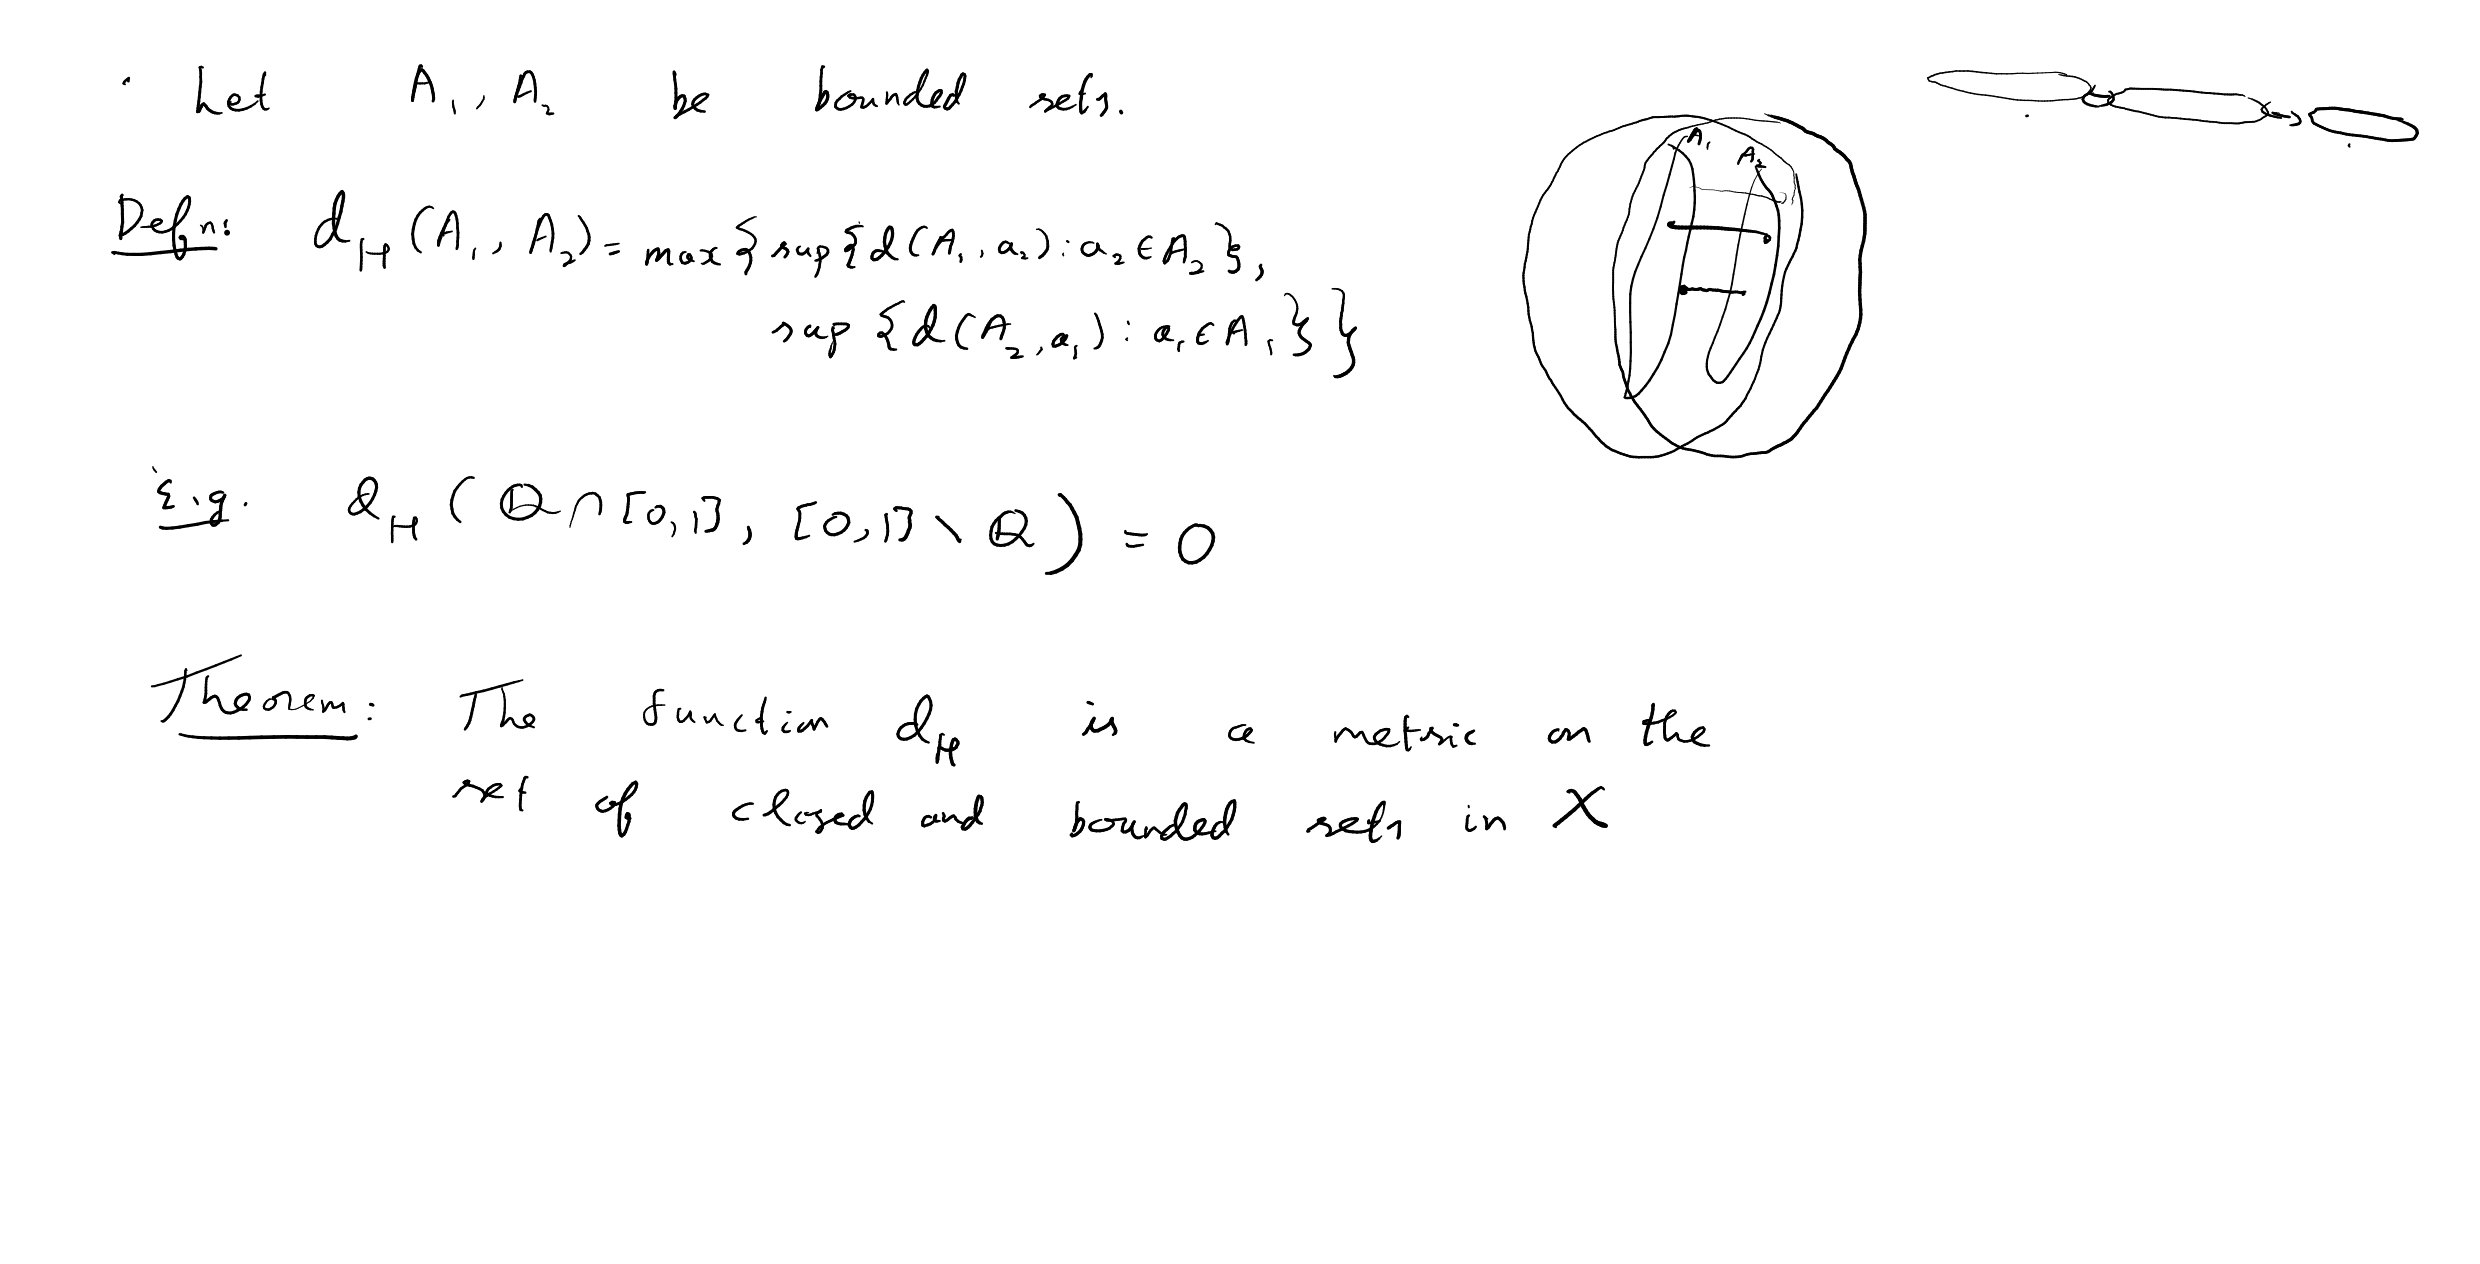 · Let A₁, A₂ be bounded sets.
Defn: d_H(A₁, A₂) = max{sup{d(A₁, a₂) : a₂ ∈ A₂},
sup{d(A₂, a₁) : a₁ ∈ A₁}}
A₁ A₂
E.g. d_H(ℚ ∩ [0,1], [0,1] \ ℚ) = 0
Theorem: The function d_H is a metric on the
set of closed and bounded sets in X